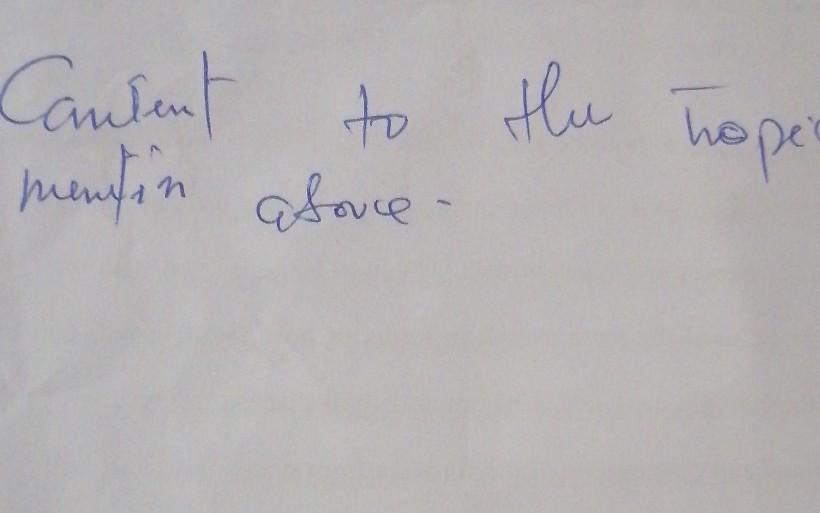 Content to the Topic
mention above -